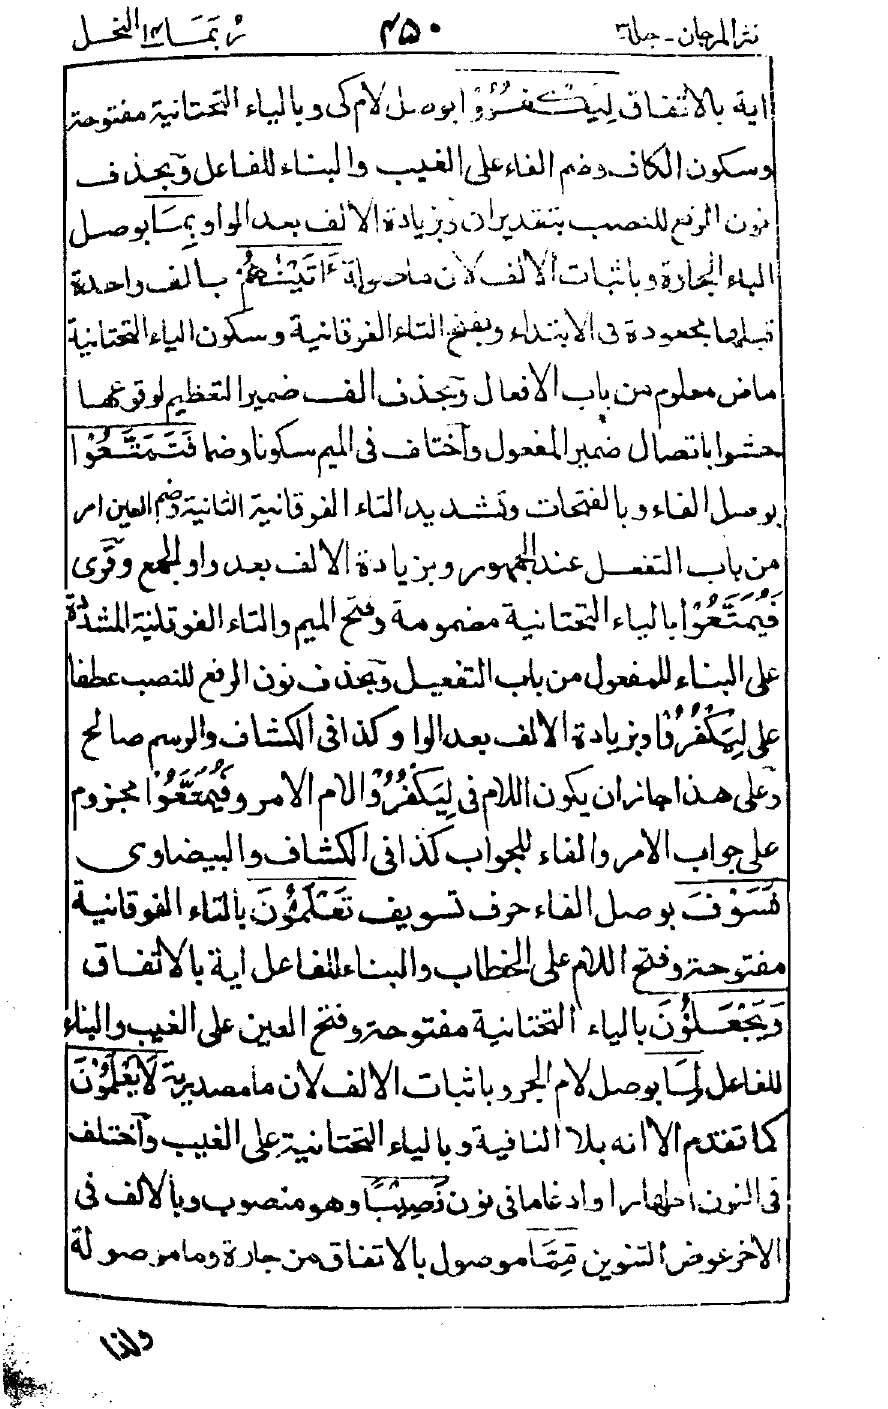 نثر المرجان - جلد ٣ ٤٥٠ ربما ١٤ النحل
اية بالاتفاق لِيَكْفُرُوْا بوصل لام كى وبالياء التحتانية مفتوحة
وسكون الكاف وضم الفاء على الغيب والبناء للفاعل وبحذف
نون الرفع للنصب بتقدير ان وبزيادة الالف بعد الواو بِمَا بوصل
الباء الجارة وباثبات الالف لان ما موصولة ءَاتَيْنٰهُمْ بالف واحدة
قبلها مجعودة فى الابتداء وبفتح التاء الفوقانية وسكون الياء التحتانية
ماض معلوم من باب الافعال وبحذف الف ضمير التعظيم لوقوعها
حشوا باتصال ضمير المفعول واختلف فى الميم سكونا وضما فَتَمَتَّعُوْا
بوصل الفاء وبالفتحات وتشديد التاء الفوقانية الثانية وضم العين امر
من باب التفعل عند الجمهور وبزيادة الالف بعد واو الجمع وقرى
فَيُمَتَّعُوْا بالياء التحتانية مضمومة وفتح الميم والتاء الفوقانية المشددة
على البناء للمفعول من باب التفعيل وبحذف نون الرفع للنصب عطفا
على لِيَكْفُرُوْا وبزيادة الالف بعد الواو كذا فى الكشاف والرسم صالح
وعلى هذا جاز ان يكون اللام فى لِيَكْفُرُوْا لام الامر وفَيُمَتَّعُوْا مجزوم
على جواب الامر والفاء للجواب كذا فى الكشاف والبيضاوى
فَسَوْفَ بوصل الفاء حرف تسويف تَعْلَمُوْنَ بالتاء الفوقانية
مفتوحة وفتح اللام على الخطاب والبناء للفاعل اية بالاتفاق
وَيَجْعَلُوْنَ بالياء التحتانية مفتوحة وفتح العين على الغيب والبناء
للفاعل لِمَا بوصل لام الجر وباثبات الالف لان ما مصدرية لَا يَعْلَمُوْنَ
كما تقدم الا انه بلا النافية وبالياء التحتانية على الغيب واختلف
فى النون اظهارا وادغاما فى نون نَصِيْبًا وهو منصوب وبالالف فى
الاخر عوض التنوين مِمَّا موصول بالاتفاق من جارة وما موصولة
ولذا